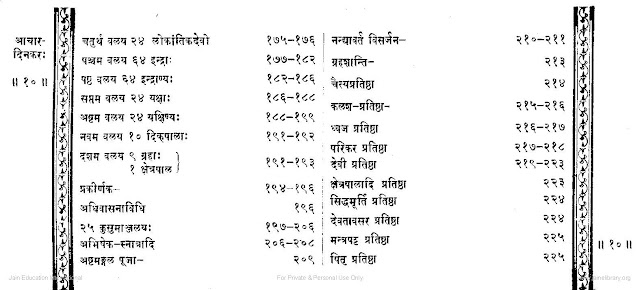 आचार-
दिनकरः
॥ १० ॥
चतुर्थ वलय २४ लोकांतिकदेवो १७५-१७६
पञ्चम वलय ६४ इन्द्राः १७७-१८२
षष्ठ वलय ६४ इन्द्राण्यः १८२-१८६
सप्तम वलय २४ यक्षाः १८६-१८८
अष्टम वलय २४ यक्षिण्यः १८८-१९९
नवम वलय १० दिक्पालाः १९१-१९२
दशम वलय ९ ग्रहाः
१ क्षेत्रपाल १९१-१९३
प्रकीर्णक- १९४-१९६
अधिवासनाविधि १९६
२५ कुसुमाञ्जलयः १९७-२०६
अभिषेक-स्नात्रादि २०६-२०८
अष्टमङ्गल पूजा- २०९
नन्द्यावर्त विसर्जन- २१०-२११
ग्रहशान्ति- २१३
चैत्यप्रतिष्ठा २१४
कलश-प्रतिष्ठा- २१५-२१६
ध्वज प्रतिष्ठा २१६-२१७
परिकर प्रतिष्ठा २१७-२१८
देवी प्रतिष्ठा २१९-२२३
क्षेत्रपालादि प्रतिष्ठा २२३
सिद्धमूर्ति प्रतिष्ठा २२४
देवतावसर प्रतिष्ठा २२४
मन्त्रपट्ट प्रतिष्ठा २२५
पितृ प्रतिष्ठा २२५
॥ १० ॥
For Private & Personal Use Only